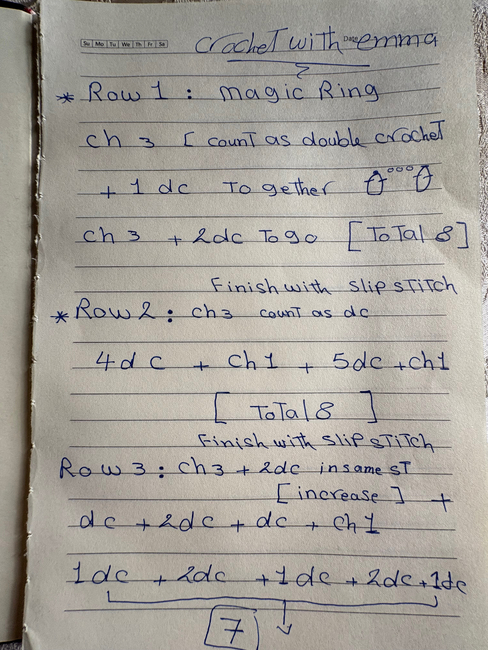 Su Mo Tu We Th Fr Sa
Date
crochet with emma
* Row 1 : Magic Ring
ch 3 [ count as double crochet
+ 1 dc To gether
ch 3 + 2dc To go [ ToTal 8 ]
Finish with slip sTiTch
* Row 2 : ch3 count as dc
4 d c + Ch 1 + 5dc + ch1
[ ToTal 8 ]
Finish with slip sTiTch
Row 3 : Ch3 + 2dc in same sT
[ increase ] +
dc + 2dc + dc + ch 1
1dc + 2dc + 1dc + 2dc + 1dc
7